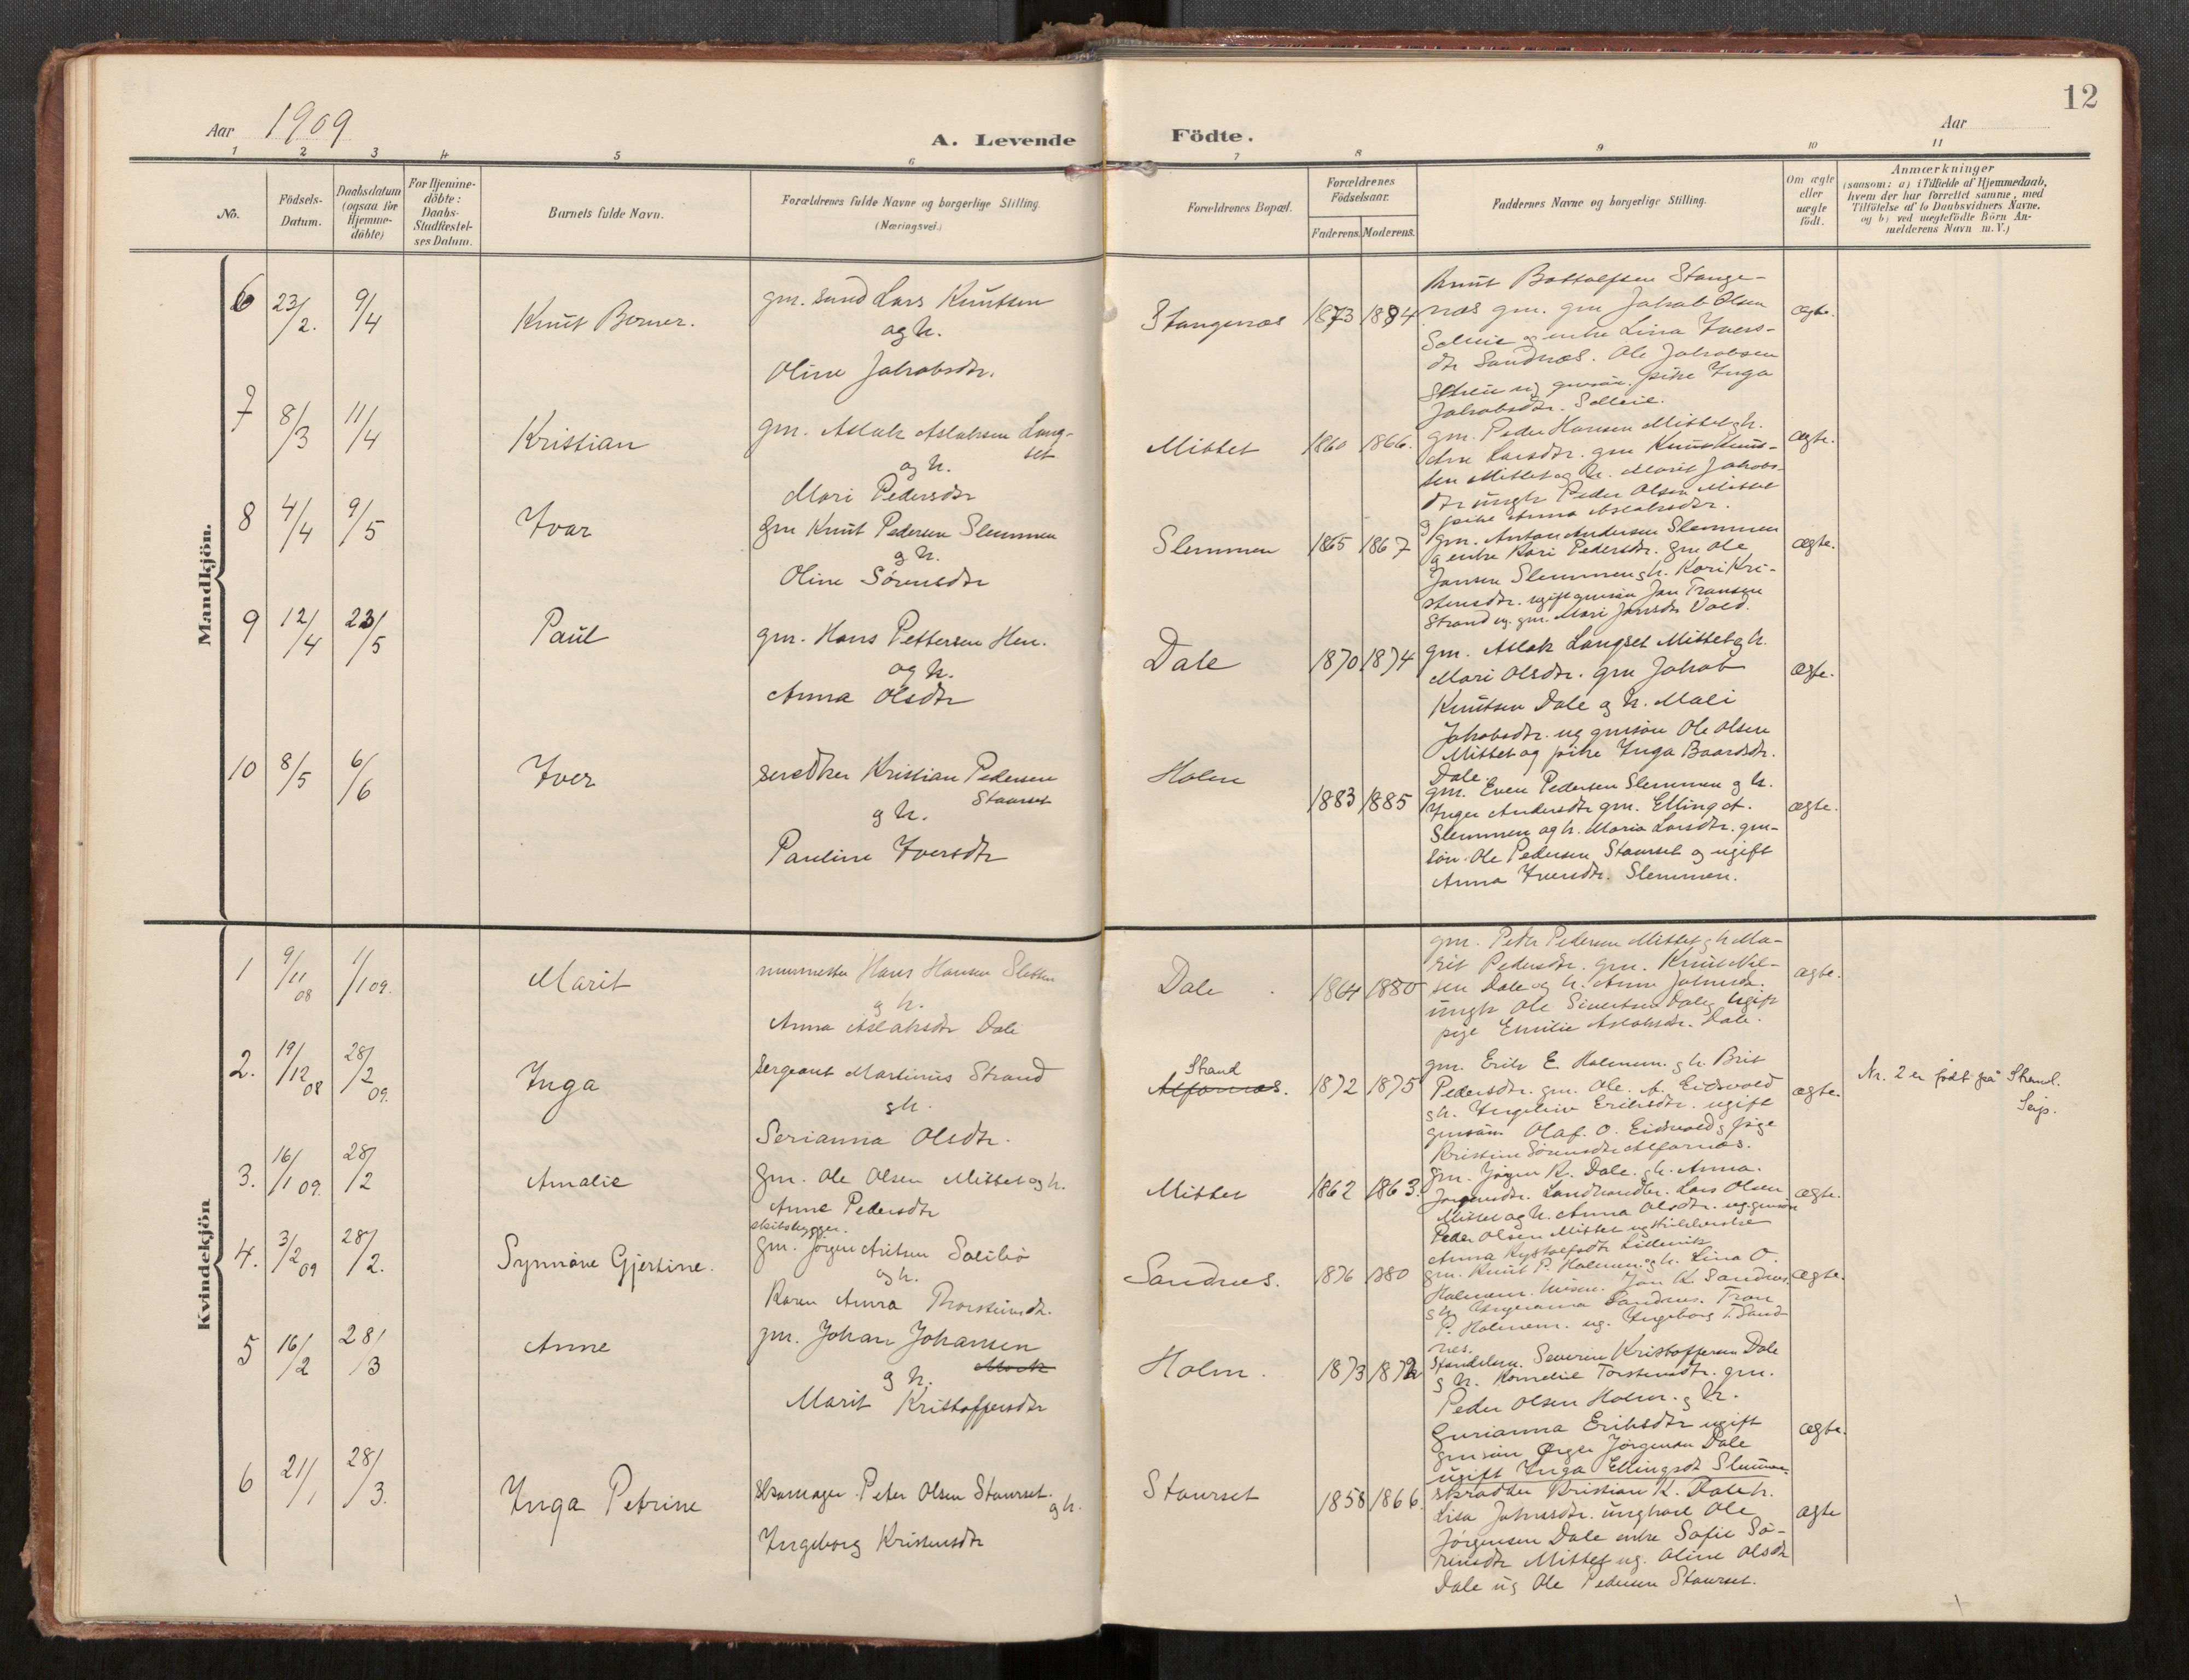 12
Aar 1909
A. Levende Födte.
Aar
1 2 3 4 5 6 7 8 9 10 11
No.
Födsels-
Datum.
Daabsdatum
(ogsaa for
Hjemme-
döbte)
For Hjemme-
döbte:
Daabs-
Stadfæstel-
ses Datum.
Barnets fulde Navn.
Forældrenes fulde Navne og borgerlige Stilling.
(Næringsvei.)
Forældrenes Bopæl.
Forældrenes
Födselsaar.
Faderens. Moderens.
Faddernes Navne og borgerlige Stilling.
Om ægte
eller
uægte
födt.
Anmærkninger
(saasom: a) i Tilfælde af Hjemmedaab,
hvem der har forrettet samme, med
Tilföielse af to Daabsvidners Navne,
og b) ved uægtefödte Börn An-
melderens Navn m. V.)
Mandkjön.
6 23/2. 9/4 Knut Berner.
gm. Lars Knutsen
og h.
Oline Jakobsdtr.
Stangenæs 1873 1884
Knut Bottolfsen Stange-
næs gm. gm Jakob Olsen
Solleie og enke Lina Ivers-
dtr Sandnæs. Ole Jakobsen
pike Inga
Jakobsdtr. Solleie.
ægte.
7 8/3 11/4 Kristian
gm. Aslak Aslaksen Lang-
set
og h.
Mari Pedersdtr
Mittet 1860 1866.
gm. Peder Hansen Mittet g h.
Ane Larsdtr. gm Knut Knut-
sen Mittet og h. Marit Jakobs-
dtr ungk Peder Olsen Mittet
g pike Anna Aslaksdtr.
ægte.
8 4/4 9/5 Ivar
gm Knut Pedersen Slemmen
g h.
Oline Sörensdtr
Slemmen 1865 1867
gm. Anton Andersen Slemmen
g enke Kari Pedersdtr. gm Ole
Jansen Slemmen g h. Kari Kri-
stensdtr. ugift gmsön Jan Transen
Strand ug. gm. Mari Jansdtr Vold.
ægte.
9 12/4 23/5 Paul
gm. Hans Pettersen Hen.
og h.
Anna Olsdtr
Dale 1870 1874
gm. Aslak Langset Mittet g h.
Mari Olsdtr. gm Jakob
Knutsen Dale g h. Mali
Jakobsdtr. ug gmsön Ole Olsen
Mittet og pike Inga Baardsdtr.
Dale.
ægte.
10 8/5 6/6 Iver
Kristian Pedersen
Staurset
g h.
Pauline Iversdtr
Holm
1883 1885
gm. Even Pedersen Slemmen g h.
Inger Andersdtr gm. Elling A.
Slemmen og h. Maria Larsdtr. gm-
sön Ole Pedersen Staurset og ugift
Anna Iversdtr. Slemmen.
ægte.
Kvindekjön
1 9/11 08 1/1 09. Marit
murmester Hans Hansen Sletten
g h.
Anna Aslaksdtr Dale
Dale 1864 1880
gm. Peder Pedersen Mittet g h Ma-
rit Pedersdtr. gm. Knut Nil-
sen Dale og h. Anne Johnsdtr.
ungk Ole Sivertsen Dale g ugift
pige Emilie Aslaksdtr. Dale.
ægte.
2. 19/12 08 28/2 09. Inga
Sergeant Martinus Strand
g h.
Serianna Olsdtr.
Strand
Alfarnæs. 1872 1875
gm. Erik E. Holmem. g h. Brit
Pedersdtr. gm. Ole. A. Eidsvold
g h. Ingeline Eriksdtr. ugift
gmsön Olaf. O. Eidsvold g pige
Kristine Sörensdtr Alfarnæs.
ægte.
Nr. 2 er födt på Strand.
Seip.
3. 16/1 09. 28/2 Amalie
gm. Ole Olsen Mittet og h.
Anne Pedersdtr
Mittet 1862 1863.
gm. Jörgen K. Dale. g h. Anna.
Jörgensdtr. Landhandler. Lars Olsen
Mittet og h. Anna Olsdtr. ug. gmsön
Peder Olsen Mittet
Anna
ægte.
4. 3/2 09 28/2. Synnöve Gjertine.
skibsbygger.
gm. Jörgen
og h.
Karen Anna Thorsteinsdtr.
Sandnes. 1876 1880
gm. Knut P. Holmem og h. Lina O.
Holmem. Jan K. Sandnes.
g h Sandnes. Tron
P. Holmem. ug. Ingeborg T. Sand-
nes.
ægte.
5 16/2 28/3 Anne
gm. Johan Johansen
g h.
Marit Kristoffersdtr
Holm. 1873 1872
Severin Kristoffersen Dale
g h. Kornelie Torstensdtr. gm.
Peder Olsen Holm. g h.
Gurianna Eriksdtr ugift
gmsön Jörgensen Dale
ugift Inga Ellingsdt Slemmen.
ægte.
6 21/1 28/3. Inga Petrine
Skomager. Peter Olsen Staurset.
g h.
Ingeborg Kristensdtr
Staurset 1858 1866.
skrædder Kristian K. Dale h.
Lisa Johnsdtr. ungkarl Ole
Jörgensen Dale enke Sofie Sö-
rensdtr Mittet ug. Oline Olsdtr
Dale ug Ole Pedersen Staurset.
ægte